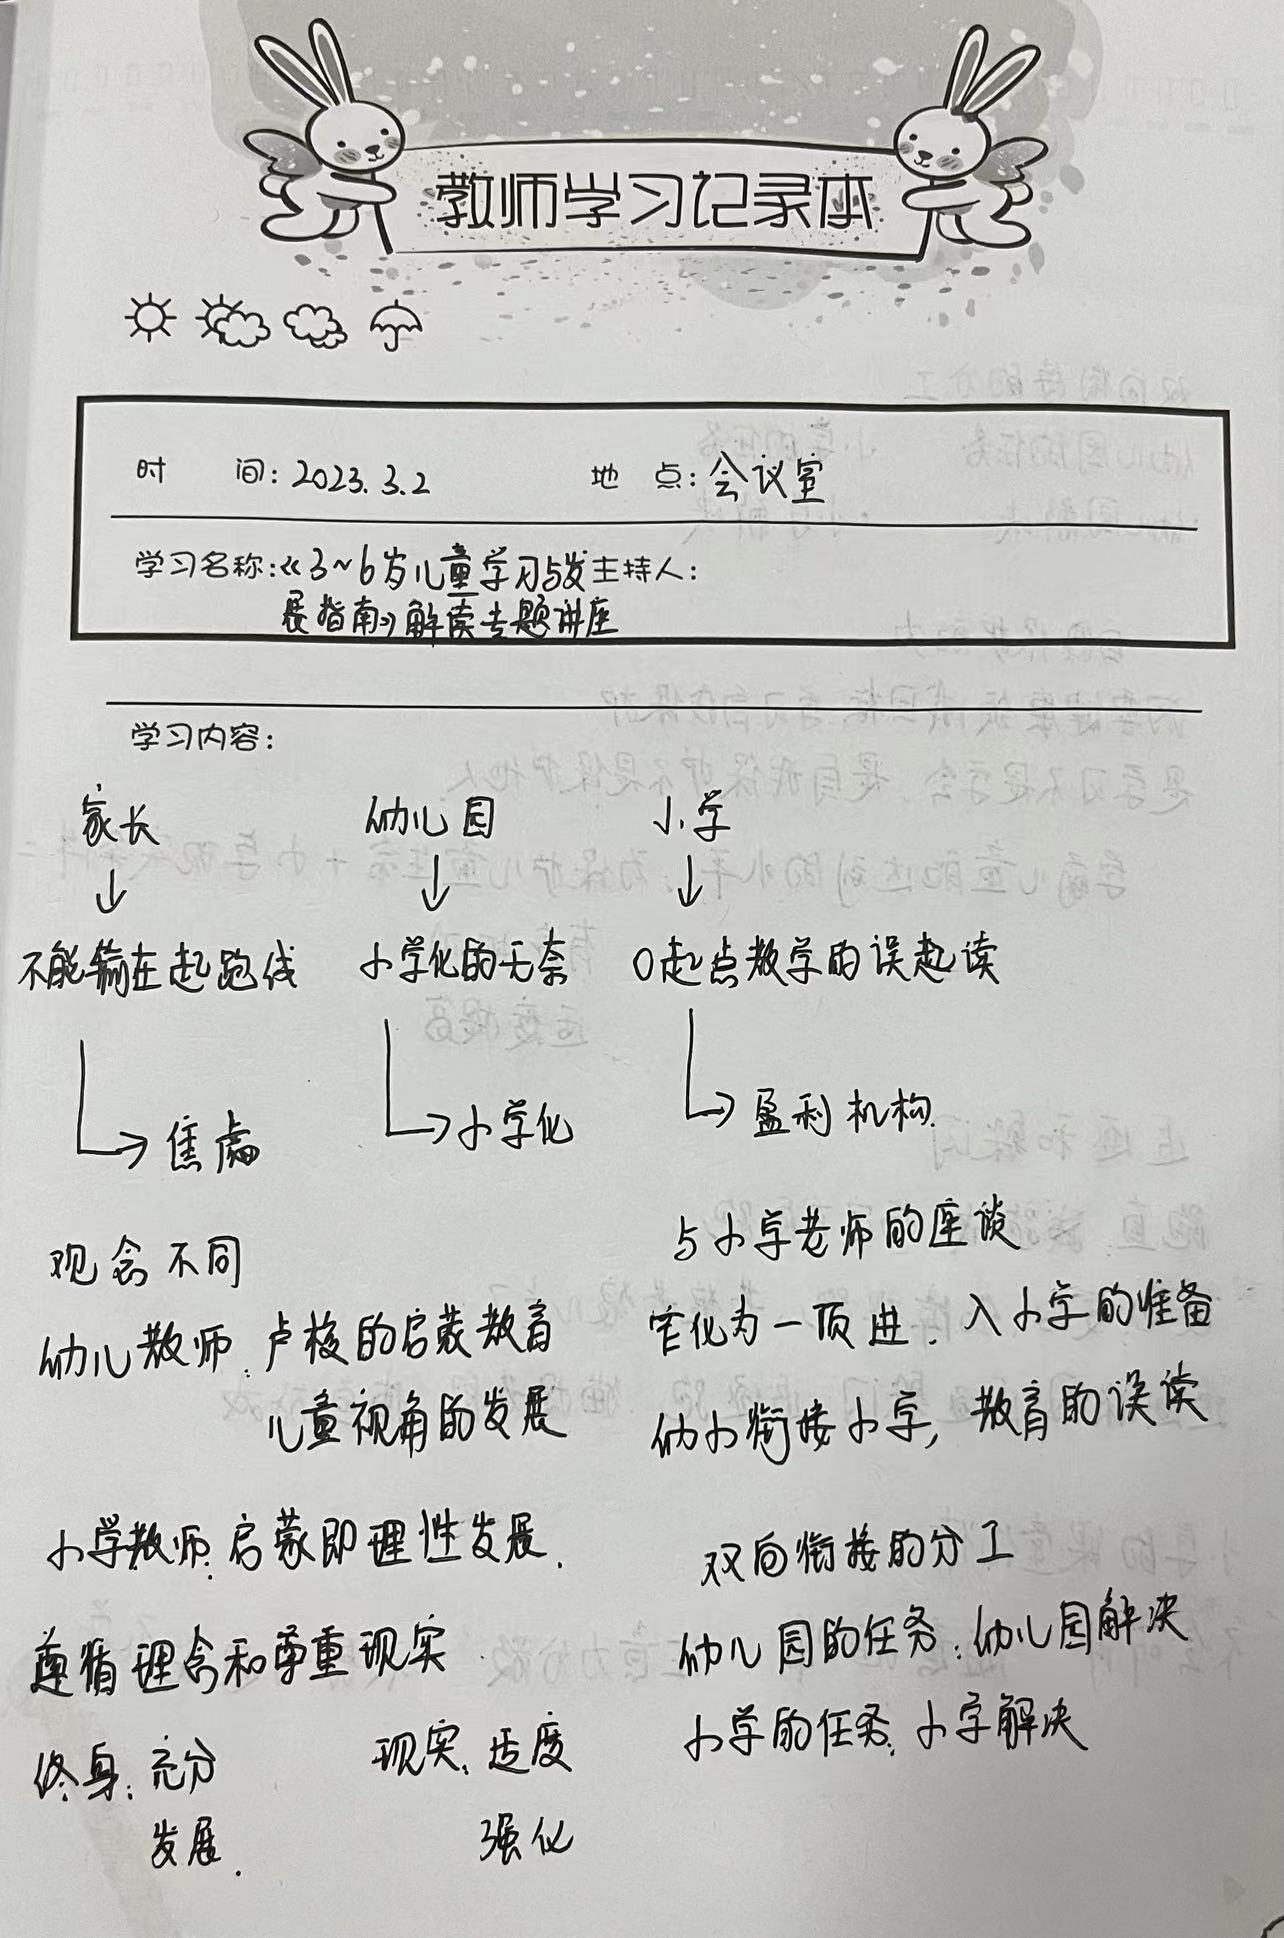 教师学习记录本
时 间: 2023.3.2 地 点: 会议室
学习名称:《3~6岁儿童学习与发 主持人:
展指南》解读专题讲座
学习内容:
家长 幼儿园 小学
↓ ↓ ↓
不能输在起跑线 小学化的无奈 0起点教学的误起读
→ 焦虑 → 小学化 → 盈利机构
观念不同
幼儿教师: 卢梭的启蒙教育
儿童视角的发展
小学教师: 启蒙即理性发展.
遵循理念和尊重现实
终身: 充分 现实: 适度
发展. 强化
与小学老师的座谈
窄化为一项进. 入小学的准备
幼小衔接小学, 教育的误读
双向衔接的分工
幼儿园的任务: 幼儿园解决
小学的任务: 小学解决